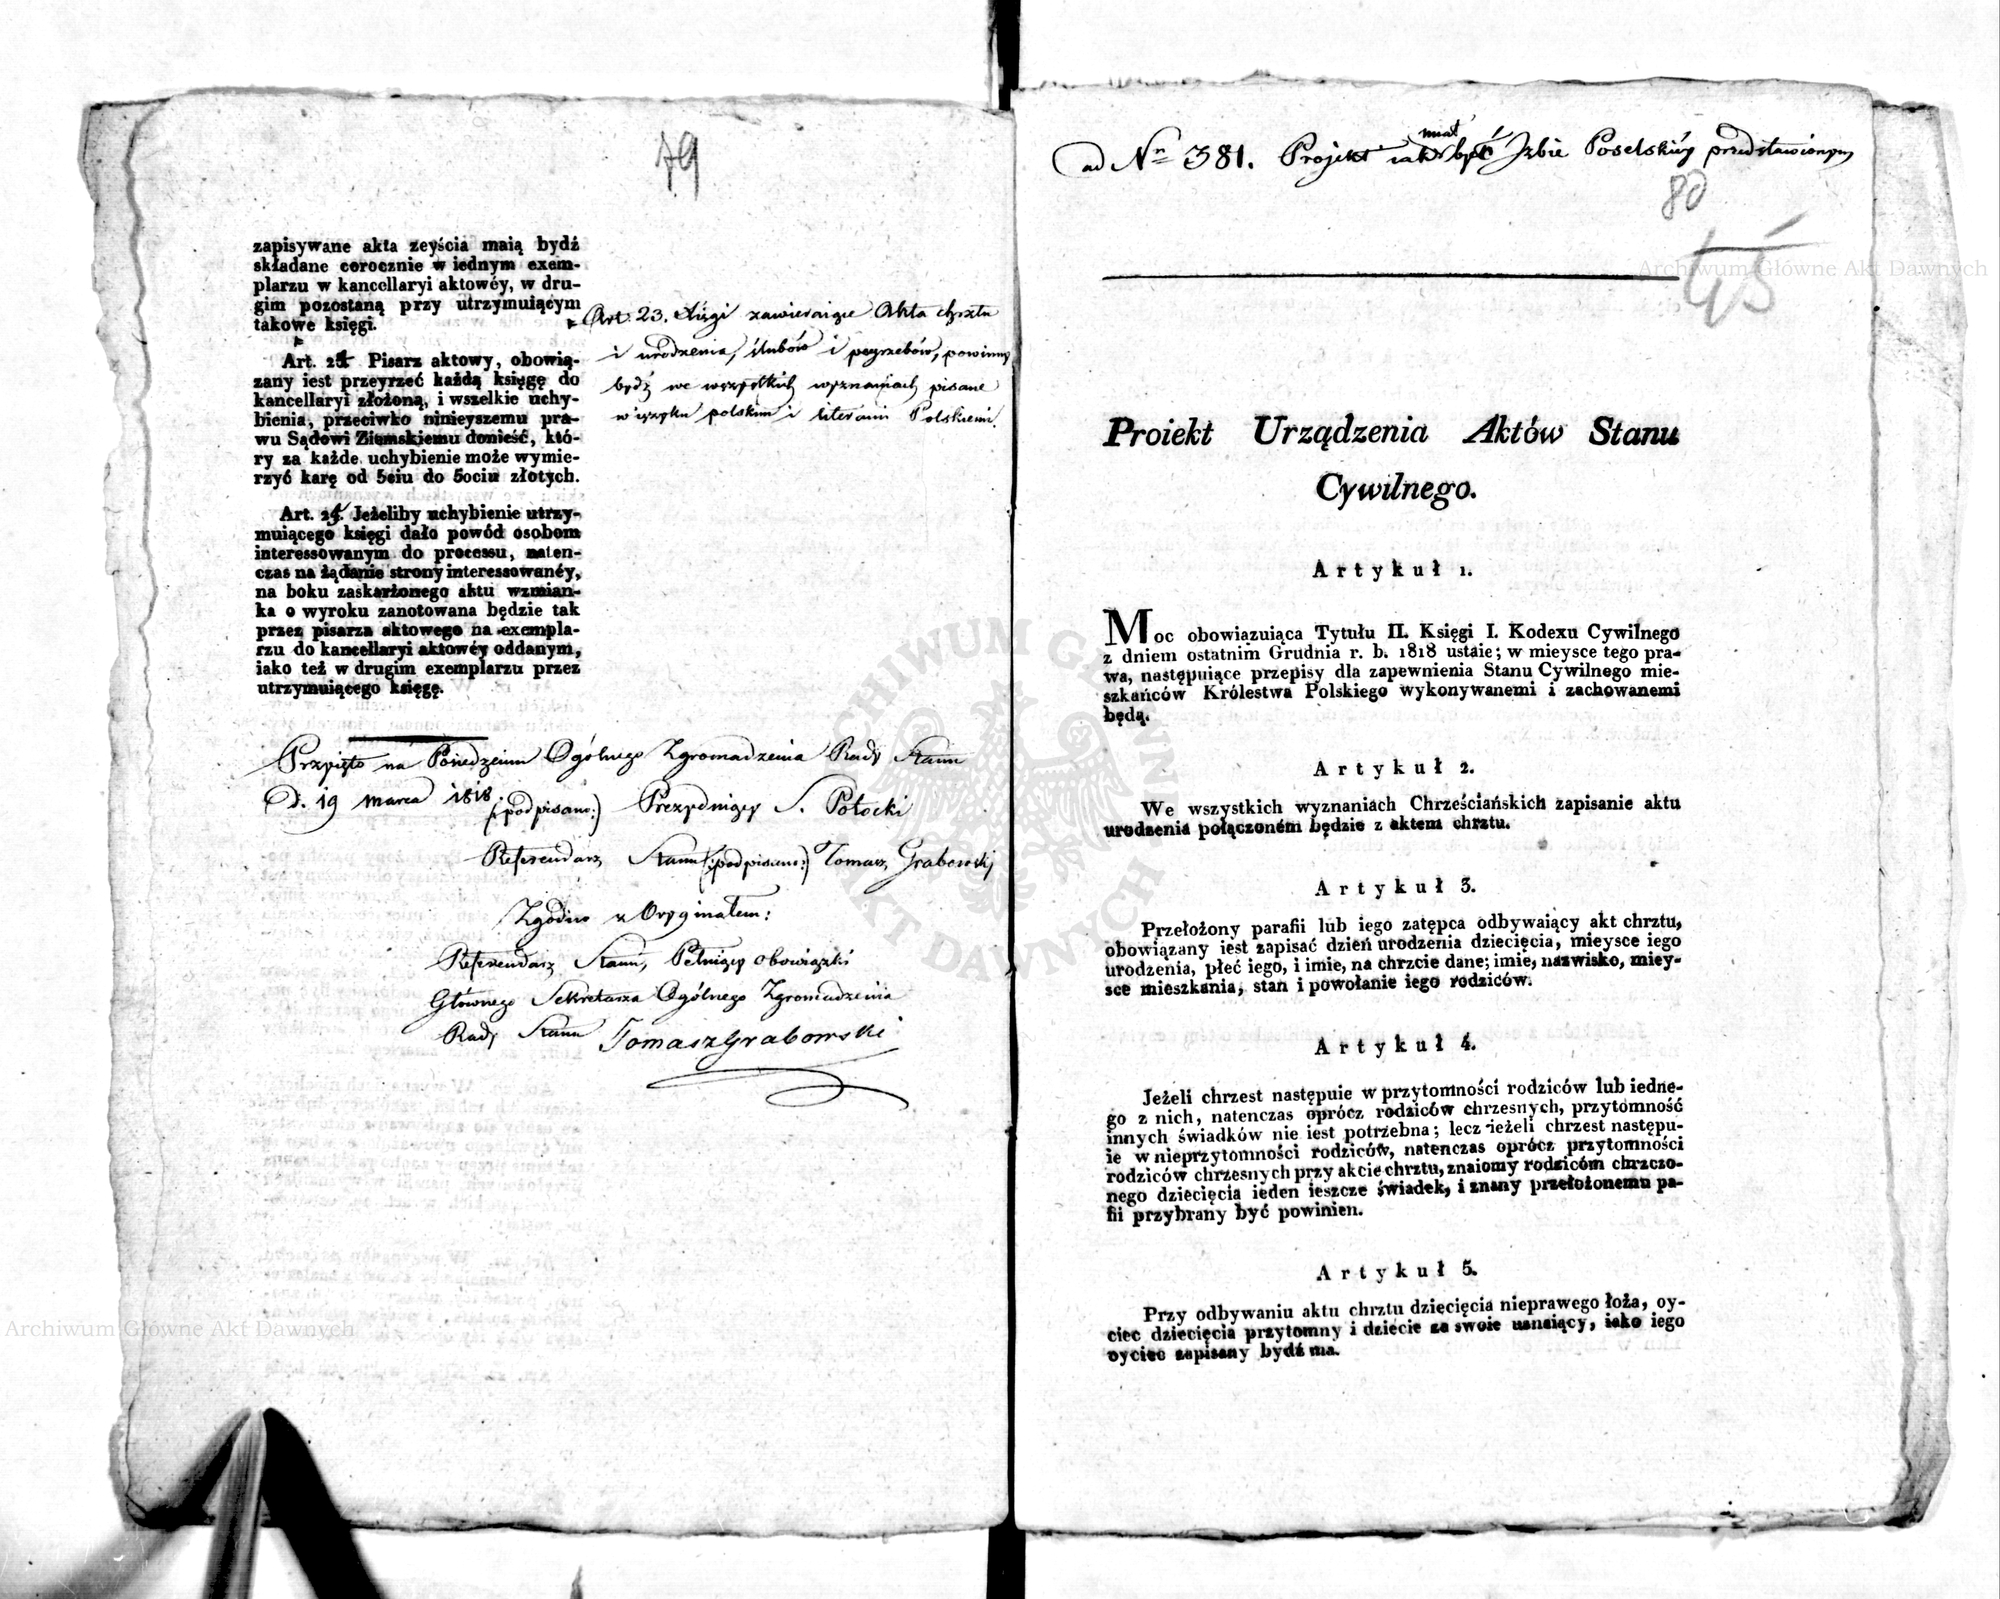 79
zapisywane akta zeyścia maią bydź
składane corocznie w iednym exem-
plarzu w kancellaryi aktowéy, w dru-
gim pozostaną przy utrzymuiącym
takowe księgi.
Art. 23. Xięgi zawieraiące Akta chrztu
i urodzenia, ślubów i pogrzebów, powinny
bydź we wszystkich wyznaniach pisane
w ięzyku polskim i literami Polskiemi.
Art. 24. Pisarz aktowy, obowią-
zany iest przeyrzeć każdą księgę do
kancellaryi złożoną, i wszelkie uchy-
bienia, przeciwko ninieyszemu pra-
wu Sądowi Ziemskiemu donieść, któ-
ry za każde uchybienie może wymie-
rzyć karę od 5ciu do 50ciu złotych.
Art. 25. Jeżeliby uchybienie utrzy-
muiącego księgi dało powód osobom
interessowanym do processu, naten-
czas na żądanie strony interessowanéy,
na boku zaskarżonego aktu wzmian-
ka o wyroku zanotowana będzie tak
przez pisarza aktowego na exempla-
rzu do kancellaryi aktowéy oddanym,
iako też w drugim exemplarzu przez
utrzymuiącego księgę.
Przyięto na Posiedzeniu Ogólnego Zgromadzenia Rady Stanu
D. 19 marca 1818.
(:podpisano:) Prezyduiący S. Potocki
Referendarz Stanu (:podpisano:) Tomasz Grabowski
Zgodno z Oryginałem:
Referendarz Stanu, Pełniący obowiązki
Głównego Sekretarza Ogólnego Zgromadzenia
Rady Stanu Tomasz Grabowski
ad Nr 381. Projekt iak miał być Izbie Poselskiéy przedstawionym
80
45
Proiekt Urządzenia Aktów Stanu
Cywilnego.
Artykuł 1.
Moc obowiązuiąca Tytułu II. Księgi I. Kodexu Cywilnego
z dniem ostatnim Grudnia r. b. 1818 ustaie; w mieysce tego pra-
wa, następuiące przepisy dla zapewnienia Stanu Cywilnego mie-
szkańców Królestwa Polskiego wykonywanemi i zachowanemi
będą.
Artykuł 2.
We wszystkich wyznaniach Chrześciańskich zapisanie aktu
urodzenia połączoném będzie z aktem chrztu.
Artykuł 3.
Przełożony parafii lub iego zatępca odbywaiący akt chrztu,
obowiązany iest zapisać dzień urodzenia dziecięcia, mieysce iego
urodzenia, płeć iego, i imie, na chrzcie dane; imie, nazwisko, miey-
sce mieszkania, stan i powołanie iego rodziców.
Artykuł 4.
Jeżeli chrzest następuie w przytomności rodziców lub iedne-
go z nich, natenczas oprócz rodziców chrzesnych, przytomność
innych świadków nie iest potrzebna; lecz ieżeli chrzest następu-
ie w nieprzytomności rodziców, natenczas oprócz przytomności
rodziców chrzesnych przy akcie chrztu, znaiomy rodzicóm chrzczo-
nego dziecięcia ieden ieszcze świadek, i znany przełożonemu pa-
fii przybrany być powinien.
Artykuł 5.
Przy odbywaniu aktu chrztu dziecięcia nieprawego łoża, oy-
ciec dziecięcia przytomny i dziecie za swoie uznaiący, iako iego
oyciec zapisany bydź ma.
Archiwum Główne Akt Dawnych
Archiwum Główne Akt Dawnych
ARCHIWUM GŁÓWNE AKT DAWNYCH